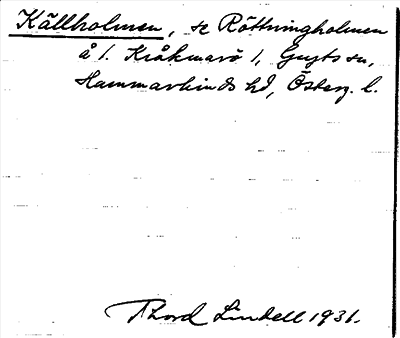 Källholmen, se Röttningholmen
å 1. Kråkmarö 1, Gryts sn,
Hammarkinds hd, Österg. l.
Thord Lindell 1931.